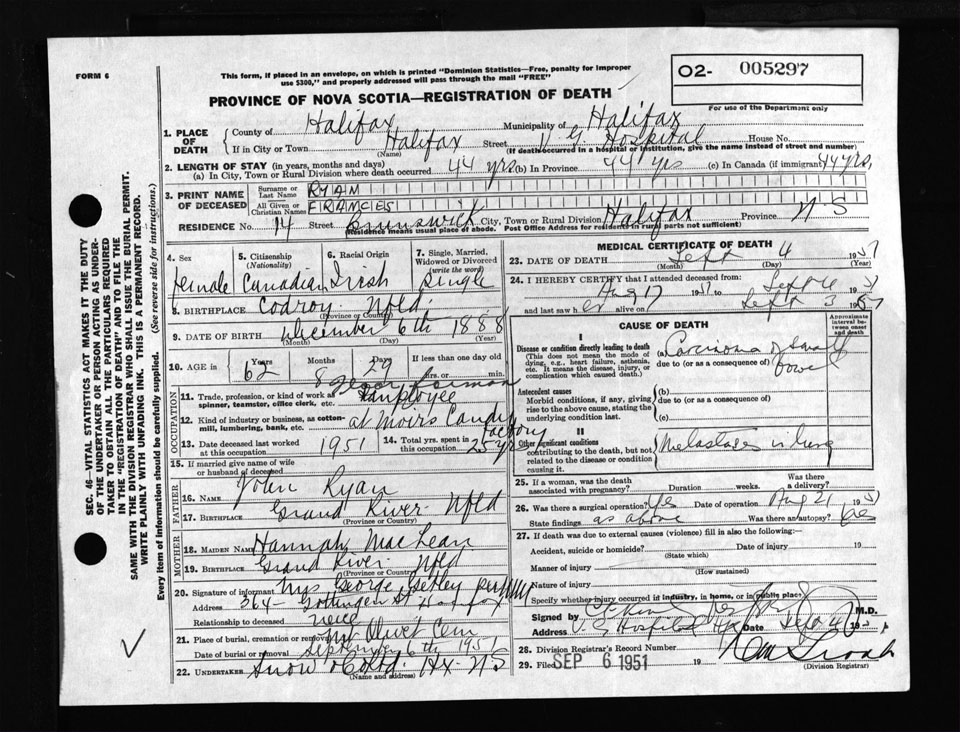 FORM 6
This form, if placed in an envelope, on which is printed "Dominion Statistics—Free, penalty for improper
use $300," and properly addressed will pass through the mail "FREE"
02- 005297
For use of the Department only
PROVINCE OF NOVA SCOTIA—REGISTRATION OF DEATH
1. PLACE OF DEATH
County of Halifax Municipality of Halifax
If in City or Town Halifax Street V.G. Hospital House No.
(Name) (If death occurred in a hospital or institution, give the name instead of street and number)
2. LENGTH OF STAY (in years, months and days)
(a) In City, Town or Rural Division where death occurred 44 yrs (b) In Province 44 yrs (c) In Canada (if immigrant) 44 yrs,
3. PRINT NAME OF DECEASED
Surname or Last Name RYAN
All Given or Christian Names FRANCIES
RESIDENCE No. 14 Street Brunswick City, Town or Rural Division Halifax Province N S
(Residence means usual place of abode. Post Office Address for residents in rural parts not sufficient)
4. Sex
female
5. Citizenship (Nationality)
Canadian
6. Racial Origin
Irish
7. Single, Married, Widowed or Divorced (write the word)
single
8. BIRTHPLACE Codroy Nfld.
(Province or Country)
9. DATE OF BIRTH December 6th 1888
(Month) (Day) (Year)
10. AGE in
Years 62 Months 8 Days 29
If less than one day old
hrs. or min.
OCCUPATION
11. Trade, profession, or kind of work as
spinner, teamster, office clerk, etc. Employee
12. Kind of industry or business, as cotton-
mill, lumbering, bank, etc. at Moirs Candy factory
13. Date deceased last worked
at this occupation 1951
14. Total yrs. spent in
this occupation 25 yrs
15. If married give name of wife
or husband of deceased
FATHER
16. Name John Ryan
17. Birthplace Grand River Nfld
(Province or Country)
MOTHER
18. Maiden Name Hannah MacLean
19. Birthplace Grand River Nfld
(Province or Country)
20. Signature of informant Mrs George
Address 364 Gottingen St Halifax
Relationship to deceased niece
21. Place of burial, cremation or removal Mt Olivet Cem
Date of burial or removal September 6th 1951
22. UNDERTAKER Snow & Co Ltd. Hx- NS
(Name and address)
MEDICAL CERTIFICATE OF DEATH
23. DATE OF DEATH Sept 4 1951
(Month) (Day) (Year)
24. I HEREBY CERTIFY that I attended deceased from:
Aug 17 1951 to Sept 4 1951
and last saw h er alive on Sept 3 1951
CAUSE OF DEATH
Approximate interval between onset and death
I
Disease or condition directly leading to death
(This does not mean the mode of
dying, e.g., heart failure, asthenia,
etc. It means the disease, injury, or
complication which caused death.)
(a) Carcinoma of small bowel
due to (or as a consequence of)
Antecedent causes
Morbid conditions, if any, giving
rise to the above cause, stating the
underlying condition last.
(b)
due to (or as a consequence of)
(c)
II
Other significant conditions
contributing to the death, but not
related to the disease or condition
causing it.
Metastases in lung
25. If a woman, was the death
associated with pregnancy? Duration weeks. Was there a delivery?
26. Was there a surgical operation? Yes Date of operation Aug 21 1951
State findings as above Was there an autopsy? Yes
27. If death was due to external causes (violence) fill in also the following:
Accident, suicide or homicide? Date of injury 19
(State which)
Manner of injury
(How sustained)
Nature of injury
Specify whether injury occurred in industry, in home, or in public place
Signed by M.D.
Address V.G. Hospital Hfx Date Sept 4 1951
28. Division Registrar's Record Number
29. Filed SEP 6 1951 19
(Division Registrar)
SEC. 46—VITAL STATISTICS ACT MAKES IT THE DUTY
OF THE UNDERTAKER OR PERSON ACTING AS UNDER-
TAKER TO OBTAIN ALL THE PARTICULARS REQUIRED
IN THE "REGISTRATION OF DEATH" AND TO FILE THE
SAME WITH THE DIVISION REGISTRAR WHO SHALL ISSUE THE BURIAL PERMIT.
WRITE PLAINLY WITH UNFADING INK. THIS IS A PERMANENT RECORD.
Every item of information should be carefully supplied. (See reverse side for instructions.)